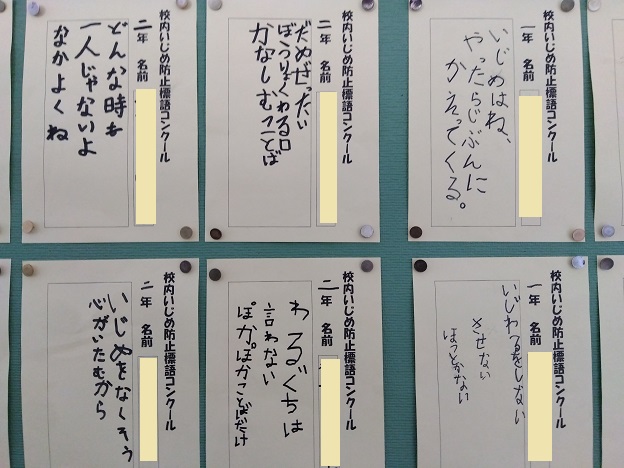 校内いじめ防止標語コンクール
一年 名前
いじめはね、
やったらじぶんに
かえってくる。
校内いじめ防止標語コンクール
二年 名前
だめぜったい
ぼうりょくわる口
かなしむことば
校内いじめ防止標語コンクール
二年 名前
どんな時も
一人じゃないよ
なかよくね
校内いじめ防止標語コンクール
一年 名前
いじわるをしない
させない
ほっとかない
校内いじめ防止標語コンクール
二年 名前
わるぐちは
言わない
ぽかぽかことばだけ
校内いじめ防止標語コンクール
二年 名前
いじめをなくそう
心がいたむから